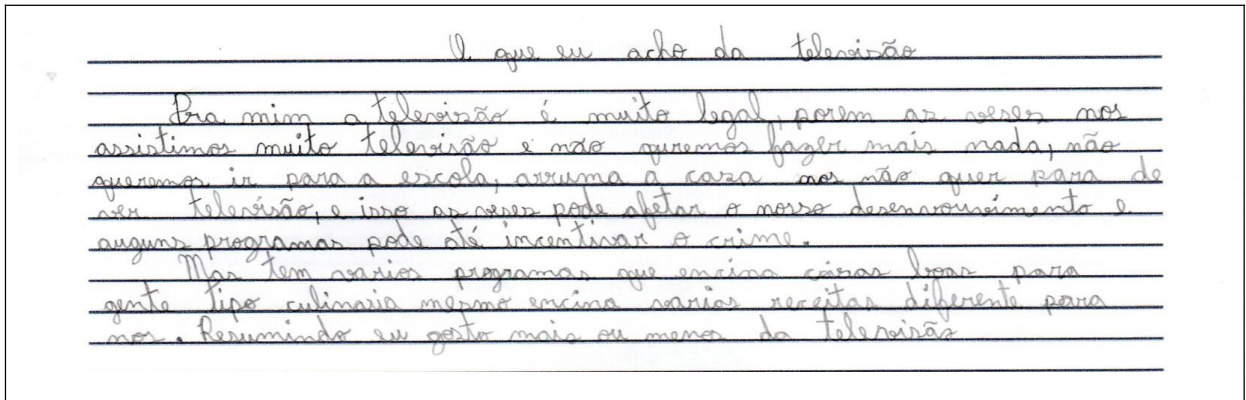 O que eu acho da televisão
Pra mim a televisão é muito legal, porem as veses nos
assistimos muito televisão e não queremos fazer mais nada, não
queremos ir para a escola, arruma a casa nos não quer para de
ver televisão, e isso as veses pode afetar o nosso desenvouvimento e
auguns programas pode até incentivar o crime.
Mas tem varios programas que encina coisas boas para
gente tipo culinaria mesmo encina varias receitas diferente para
nos. Resumindo eu gosto mais ou menos da televisão